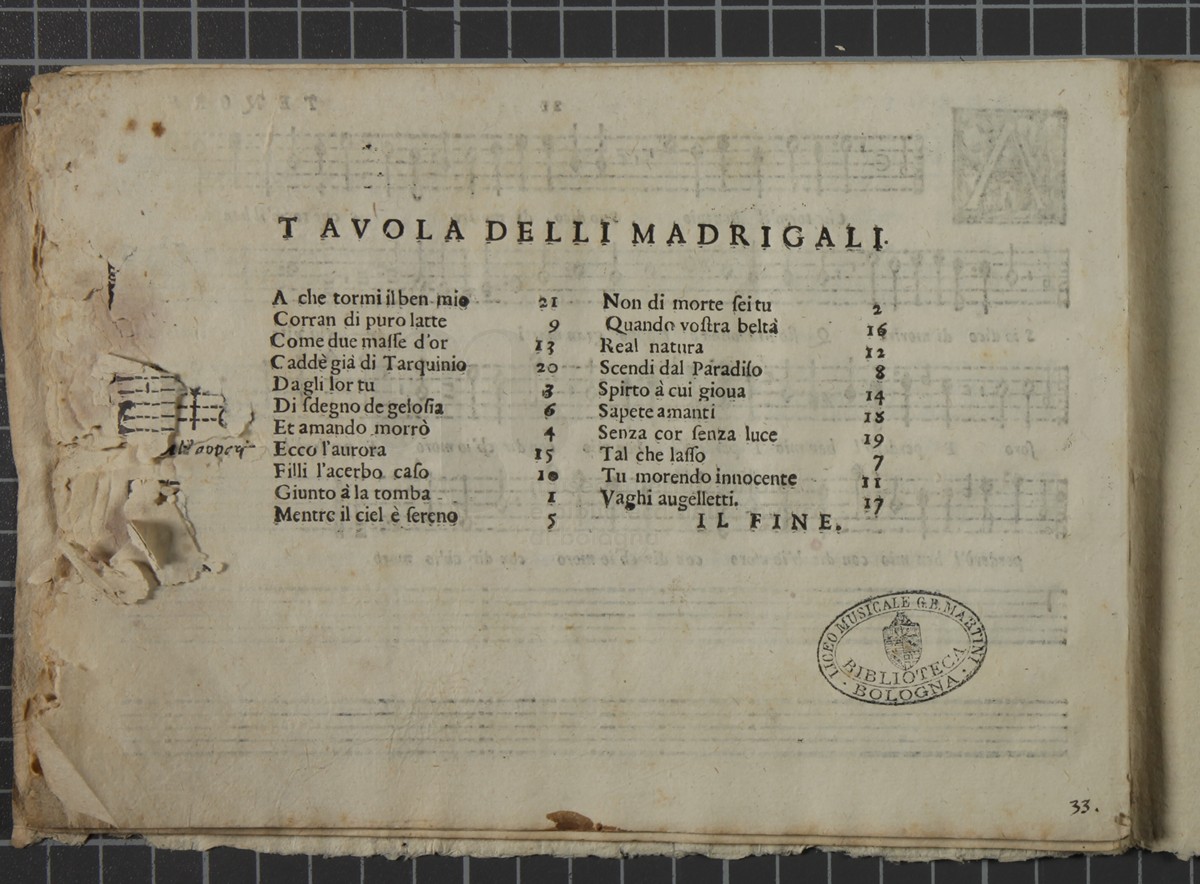 TAVOLA DELLI MADRIGALI.
A che tormi il ben mio 21
Corran di puro latte 9
Come due maſſe d'or 13
Caddè già di Tarquinio 20
Da gli lor tu 3
Di ſdegno de geloſia 6
Et amando morrò 4
Ecco l'aurora 15
Filli l'acerbo caſo 10
Giunto à la tomba 1
Mentre il ciel è ſereno 5
Non di morte ſei tu 2
Quando voſtra beltà 16
Real natura 12
Scendi dal Paradiſo 8
Spirto à cui gioua 14
Sapete amanti 18
Senza cor ſenza luce 19
Tal che laſſo 7
Tu morendo innocente 11
Vaghi augelletti. 17
IL FINE.
LICEO MUSICALE G.B. MARTINI
BIBLIOTECA
BOLOGNA
33.